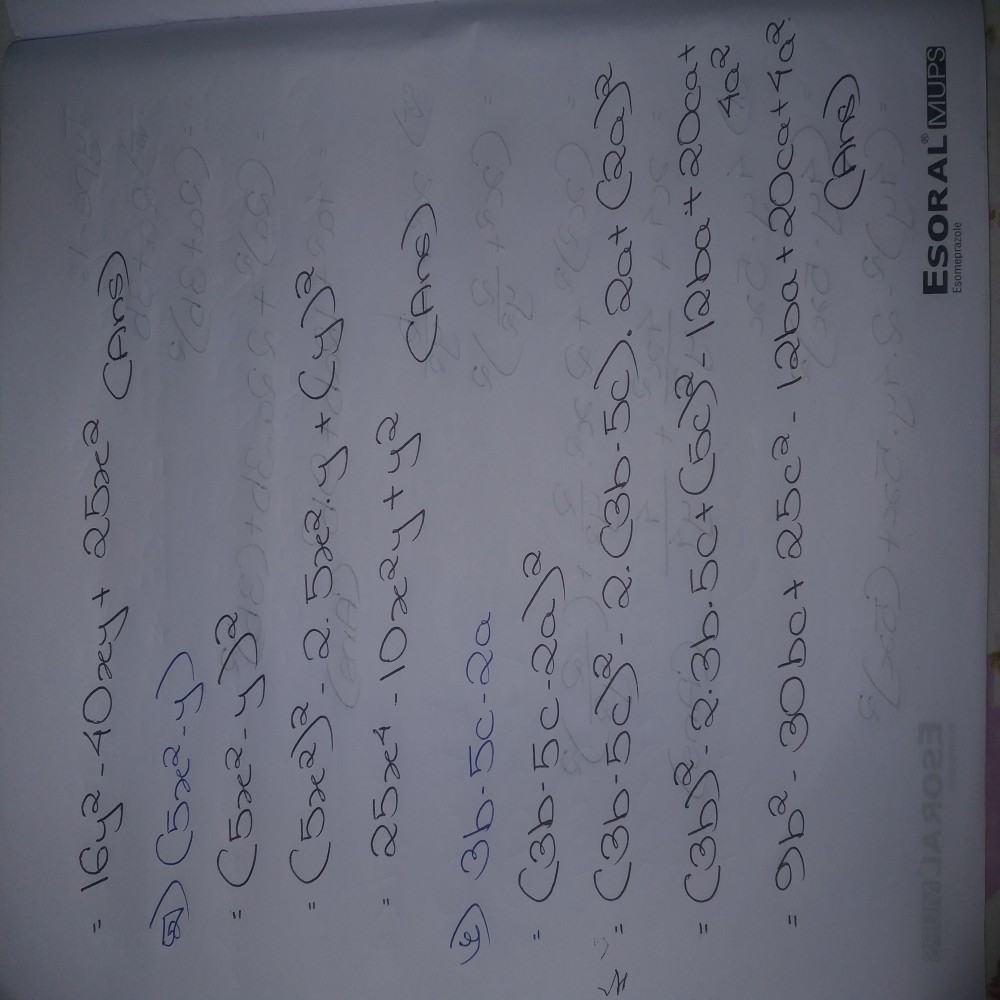 = 16y² - 40xy + 25x² (Ans)
ঘ) (5x² - y)
= (5x² - y)²
= (5x²)² - 2. 5x². y + (y)²
= 25x⁴ - 10x²y + y² (Ans)
ঙ) 3b - 5c - 2a
= (3b - 5c - 2a)²
= (3b - 5c)² - 2. (3b - 5c). 2a + (2a)²
= (3b)² - 2. 3b. 5c + (5c)² - 12ba + 20ca +
4a²
= 9b² - 30bc + 25c² - 12ba + 20ca + 4a²
(Ans)
ESORAL® MUPS
Esomeprazole